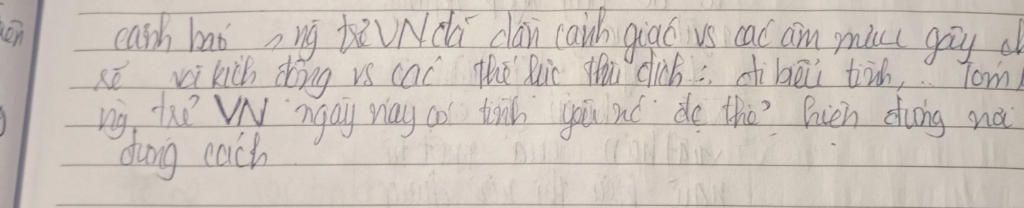 cảnh báo → ng trẻ VN đã dần cảnh giác vs các âm mưu gây
xé với kích động vs các thế lực thù địch: đi biểu tình,... Tóm
ng trẻ VN ngày nay có tình yêu nc đc thể hiện đúng nơi
đúng cách